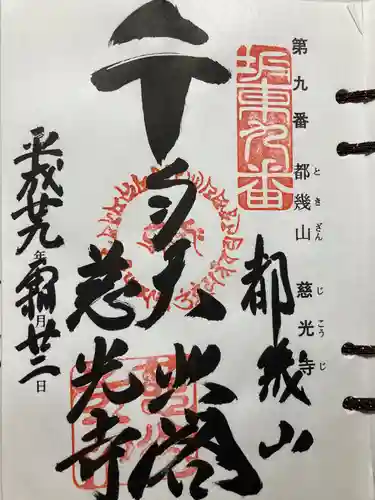 第九番 都幾山 慈光寺
とき ざん じ こう じ
坂東九番
都幾山
千手大悲
慈光寺
平成廿九年霜月廿二日